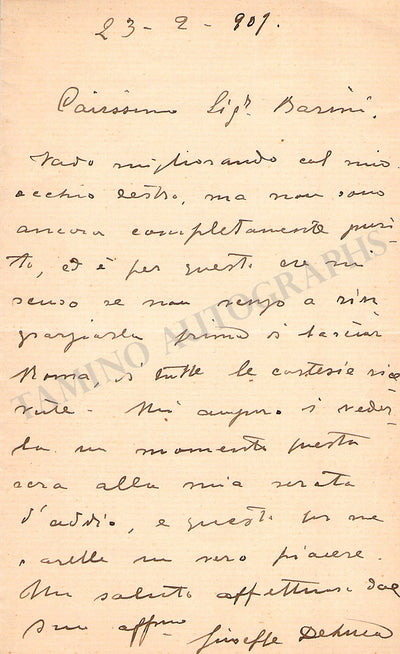 23 - 2 - 909.
Carissimo Sigr. Barini.
Vado migliorando col mio
occhio destro, ma non sono
ancora completamente guari-
to, ed è per questo che mi
scuso se non vengo a rin
graziarla prima di lasciar
Roma, di tutte le cortesie rice
vute - Mi auguro di veder-
la un momento questa
sera alla mia serata
d'addio, e questo per me
sarebbe un vero piacere.
Un saluto affettuoso dal
suo affmo Giuseppe DeLuca
TAMINO AUTOGRAPHS